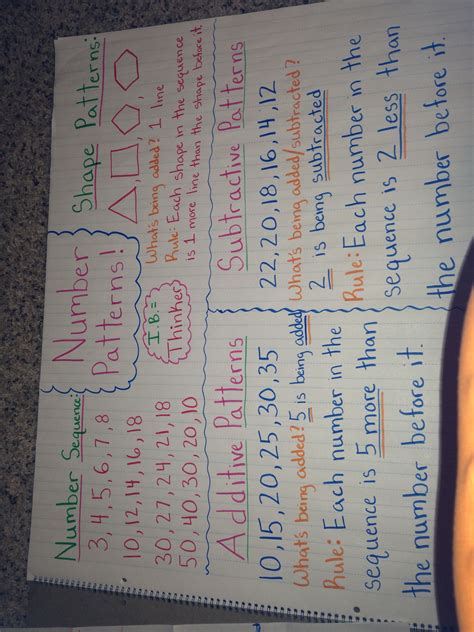 Number Sequence:
3, 4, 5, 6, 7, 8
10, 12, 14, 16, 18
30, 27, 24, 21, 18
50, 40, 30, 20, 10
Number
Patterns!
I.B.=
Thinker
Shape Patterns:
What's being added? 1 line
Rule: Each shape in the sequence
is 1 more line than the shape before it.
Additive Patterns
10, 15, 20, 25, 30, 35
What's being added? 5 is being added
Rule: Each number in the
sequence is 5 more than
the number before it.
Subtractive Patterns
22, 20, 18, 16, 14, 12
What's being added/subtracted?
2 is being subtracted
Rule: Each number in the
sequence is 2 less than
the number before it.